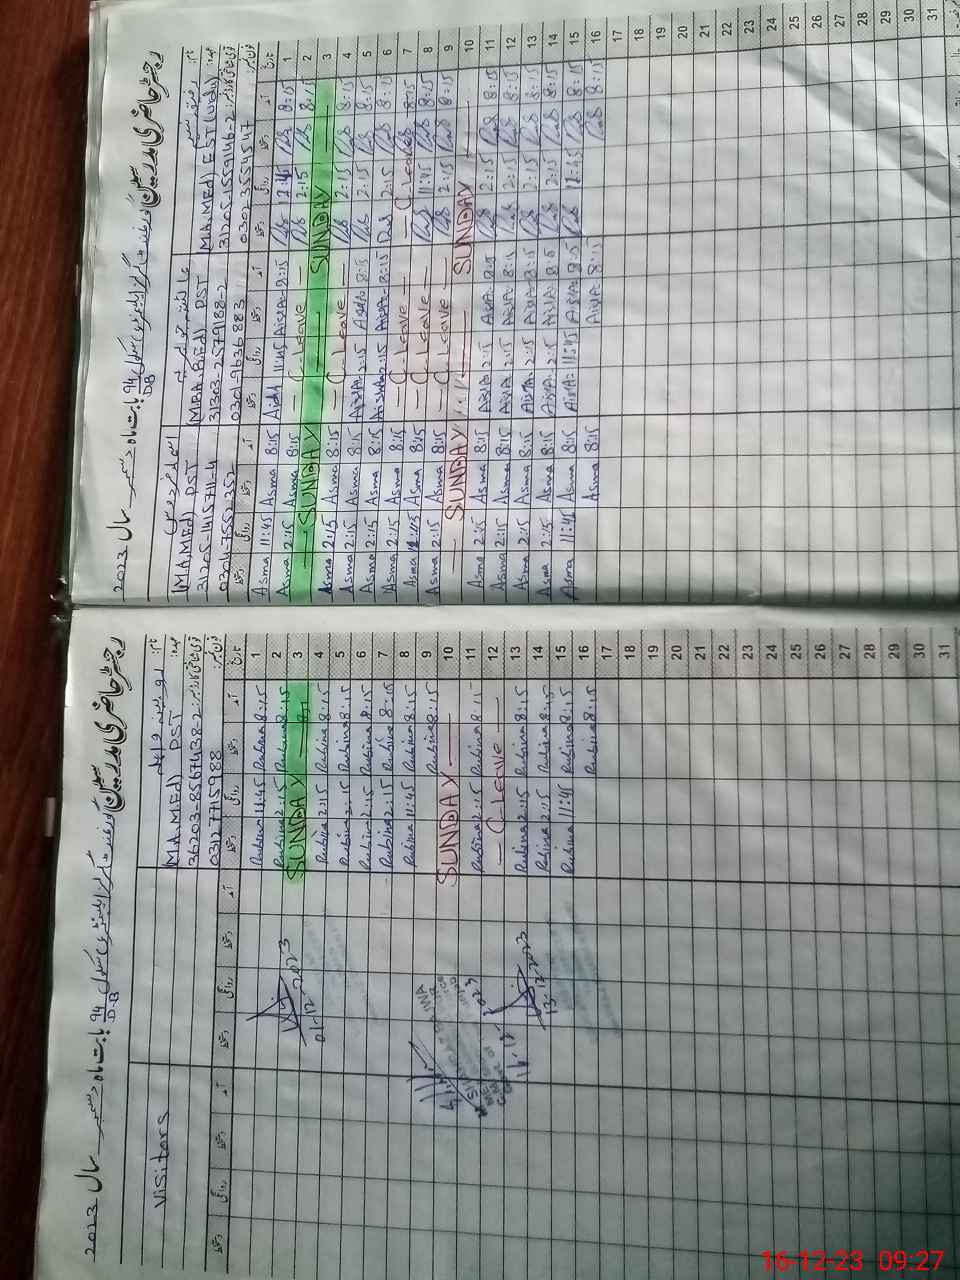 رجسٹر حاضری مدرسین گورنمنٹ گرلز ایلیمنٹری سکول 94 D.B بابت ماہ دسمبر سال 2023
نام:
عہدہ: MA.MEd) EST (Urdu)
MBA BEd) DST
(MA.MEd) DST
قومی شناختی کارڈ نمبر: 31205-1559146-2
31303-2579188-2
31205-1415714-4
فون نمبر: 0302-3554547
0301-9636883
0304-7552352
تاریخ آمد دستخط روانگی دستخط آمد دستخط روانگی دستخط آمد دستخط روانگی دستخط
1 8:15 8:15 Aisha 11:45 Aisha 8:15 Asma 11:45 Asma
2 8:15 2:15 — C. Leave — 8:15 Asma 2:15 Asma
3 SUNDAY SUNDAY
4 8:15 2:15 — C. Leave — 8:15 Asma 2:15 Asma
5 8:15 2:15 8:15 Aisha 2:15 Aisha 8:15 Asma 2:15 Asma
6 8:15 2:15 8:15 Aisha 2:15 Aisha 8:15 Asma 2:15 Asma
7 8:15 — C. Leave — — C. Leave — 8:15 Asma 2:15 Asma
8 8:15 11:45 — C. Leave — 8:15 Asma Asma
9 8:15 2:15 — C. Leave — 8:15 Asma 2:15 Asma
10 SUNDAY SUNDAY
11 8:15 2:15 8:15 Aisha 2:15 Aisha 8:15 Asma 2:15 Asma
12 8:15 2:15 8:15 Aisha 2:15 Aisha 8:15 Asma 2:15 Asma
13 8:15 2:15 8:15 Aisha 2:15 Aisha 8:15 Asma 2:15 Asma
14 8:15 2:15 8:15 Aisha 2:15 Aisha 8:15 Asma 2:15 Asma
15 8:15 12:45 8:15 Aisha 11:45 Aisha 8:15 Asma 11:45 Asma
16 8:15 8:15 Aisha 8:15 Asma
17
18
19
20
21
22
23
24
25
26
27
28
29
30
31
رجسٹر حاضری مدرسین گورنمنٹ گرلز ایلیمنٹری سکول 94 D.B بابت ماہ دسمبر سال 2023
نام:
Visitors
عہدہ: MA.MEd) DST
قومی شناختی کارڈ نمبر: 36203-8567438-2
فون نمبر: 03127715988
تاریخ آمد دستخط روانگی دستخط آمد دستخط روانگی دستخط آمد دستخط روانگی دستخط
1 8:15 Rubina 11:45 Rubina
2 8:15 Rubina 2:15 Rubina
3 SUNDAY
4 8:15 Rubina 2:15 Rubina
01-12-2023
5 8:15 Rubina 2:15 Rubina
6 8:15 Rubina 2:15 Rubina
7 8:15 Rubina 2:15 Rubina
8 8:15 Rubina 11:45 Rubina
9 8:15 Rubina
10 SUNDAY
11 8:15 Rubina 2:15 Rubina
12 — C. Leave —
13 8:15 Rubina 2:15 Rubina
14 8:15 Rubina 2:15 Rubina
13-12-2023
15 8:15 Rubina 11:45 Rubina
16 8:15 Rubina
17
18
19
20
21
22
23
24
25
26
27
28
29
30
31
16-12-23 09:27